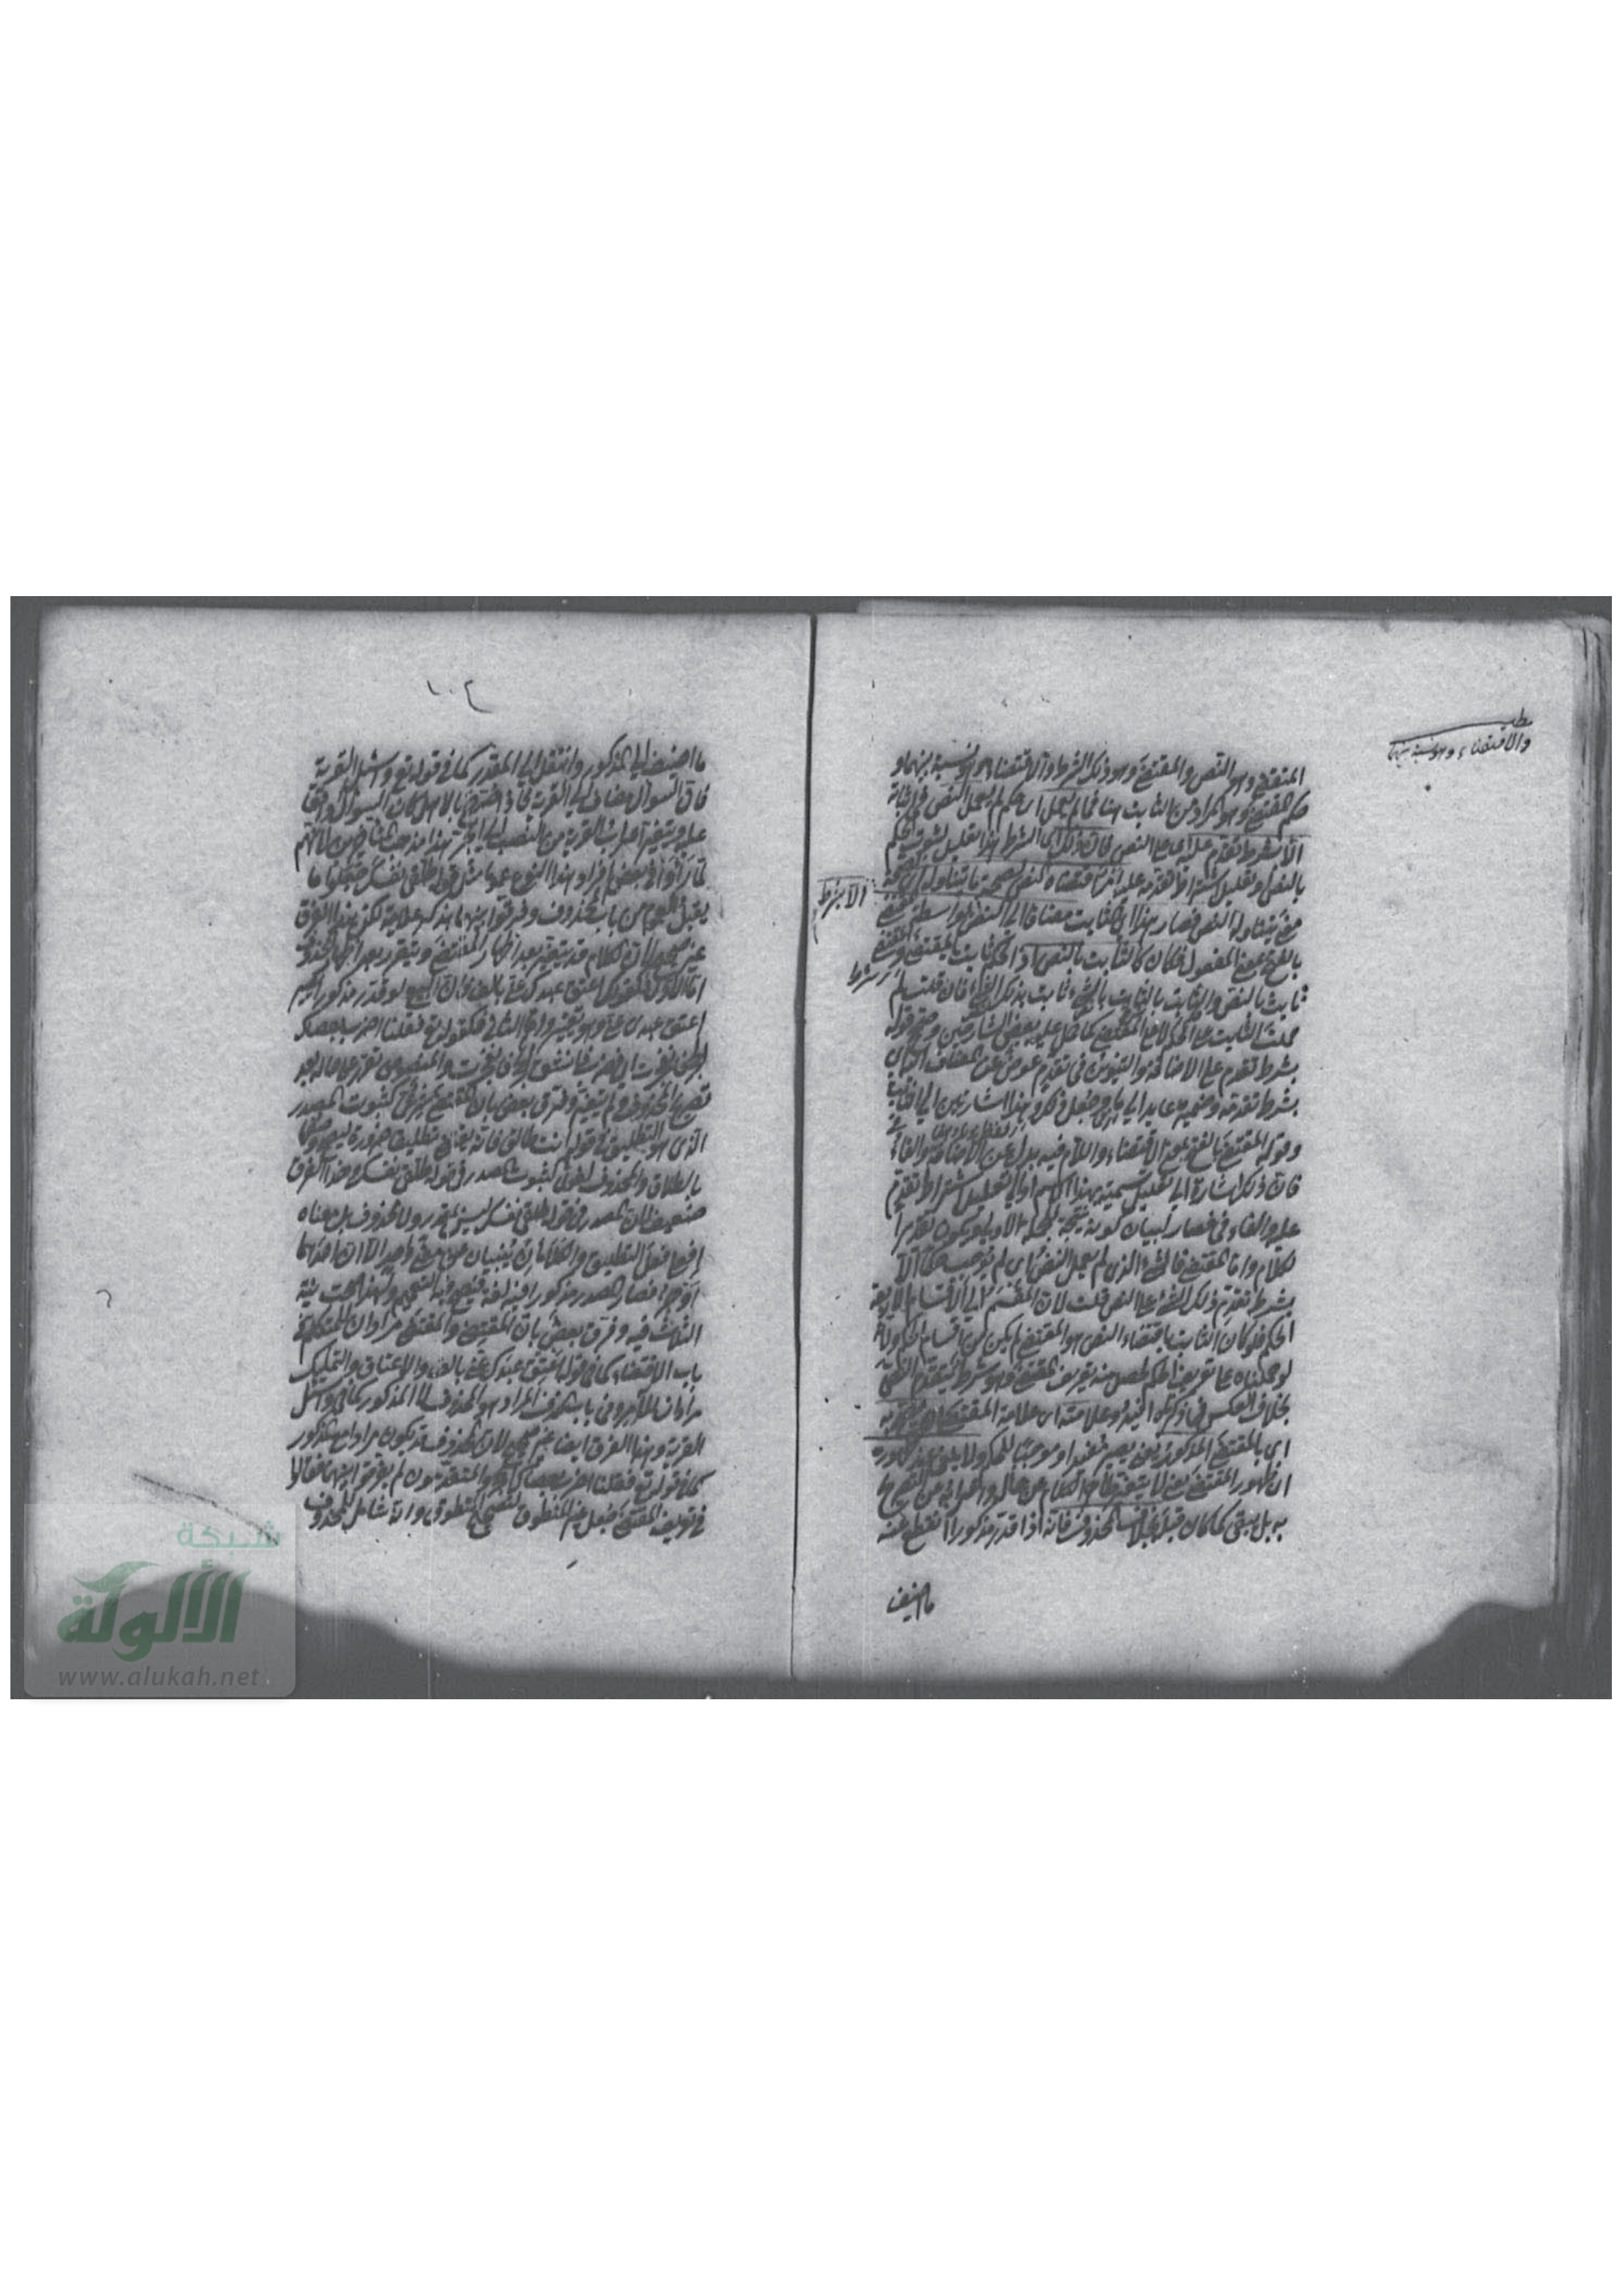 المقتضي وهو النص والمقتضى وهو ذلك الشرط والاقتضاء هو نسبة بينهما و
حكم المقتضى وهو المراد من الثابت هنا فما لم يعمل اى حكم لم يعمل النص في اثباته
الا بشرط تقدم عليه اى على النص فان ذلك اى الشرط هذا تعليل لثبوت الحكم
بالنص وتعليل اشتراط تقدمه عليه امر اقتضاه النص لصحة ما يتناوله اى لصحة
معنى يتناوله النص فصار هذا اى الثابت مضافا الى النص بواسطة المقتضى
بالفتح بمعنى المفعول فكان كالثابت بالنص اذ الحكم ثابت بالمقتضى والمقتضى
ثابت بالنص والثابت بالثابت بالشئ ثابت بذلك الشئ فان قلت لم
حملت الثابت على الحكم لا على المقتضى كما حمل عليه بعض الشارحين وصحح قوله
بشرط تقدم على الاضافة والتنوين في تقدم عوض عن المضاف اليه اى
بشرط تقدمه وضميره عايد الى ما
وقوله المقتضى بالفتح بمعنى الاقتضاء واللام فيه بدل عن الاضافة والفاء في
فان ذلك اشارة الى تعليل تسميته بهذا الاسم او الى تعليل اشتراط تقدم
عليه والفاء في فصار لبيان كونه نتيجة للجملة الاولى ويكون تقدير
الكلام واما المقتضى فالشئ الذى لم يعمل النص اى لم يوجب حكما الا
بشرط تقدم ذلك الشئ على النص قلت لان المقسم الى الاقسام الاربعة
الحكم فلو كان الثابت باقتضاء النص هو المقتضى لم يكن من اقسام الحكم ولانه
لو حملناه على تعريف الحكم لحصل منه تعريف المقتضى وهو شرط يتقدم النص
بخلاف العكس وعلامته اى علامة المقتضى ان يصح به
اى بالمقتضى المذكور يعنى يصير مفيدا وموجبا للحكم ولا يلغى عند ظهوره
اى ظهور المقتضى يعنى لا يتغير ظاهر الكلام عن حاله واعرابه عن التصريح
به بل يبقى كما كان قبله بخلاف المحذوف فانه اذا قدر مذكورا انقطع عنه
ما اضيف
مطلب
والاقتضاء وهو نسبة بينهما
الا بشرط
شرط
١٠٤
ما اضيف الى المذكور وانتقل الى المقدر كما في قوله تع واسئل القرية
فان السوال مضاف الى القرية فاذا صرح بالاهل كان السوال واقعا
عليه ويتغير اعراب القرية من النصب الى الجر هذا مذهب المتاخرين فانهم
لما رأوا في بعض افراد هذا النوع عموما مثل قوله طلقي نفسك جعلوا ما
يقبل العموم من باب المحذوف وفرقوا بينهما بذكر علامة لكن هذا الفرق
غير صحيح لان الكلام قد يتغير بعد اظهار المقتضى ويتقرر بعد اظهار المحذوف
اما الاول فكقولك اعتق عبدك عنى بالف فان البيع لو قدر مذكورا يصير
اعتق عبدى عنى وهو تغيير واما الثاني فكقوله تع فقلنا اضرب بعصاك
الحجر فانفجرت اى فضرب فانشق الحجر فانفجرت والمنصوص تقرر على حاله بعد
تصريح المحذوف ولم يتغير وفرق بعض بان المقتضى شرعى كثبوت المصدر
الذى هو التطليق في قوله انت طالق فانه يقتضى تطليقا ضرورة ليصح وصفها
بالطلاق والمحذوف لغوى كثبوت المصدر في قوله طلقي نفسك وهذا الفرق
ضعيف لان المصدر في قوله طلقي نفسك ليس بمقدر ولا محذوف بل معناه
افعلى فعل التطليق والكلامان ينبئان عن معنى واحد الا ان احدهما
اوجز فصار المصدر مذكورا فيه لغة فيصح فيه التعميم ولهذا صحت نية
الثلث فيه وفرق بعض بان المقتضى والمقتضى مرادان للمتكلم في
باب الاقتضاء كما في قوله اعتق عبدك عنى بالف والاعتاق والتمليك
مرادان للآمر وفي باب المحذوف المراد هو المحذوف لا المذكور كما في واسئل
القرية وهذا الفرق ايضا غير صحيح لان المحذوف قد يكون مرادا مع المذكور
كما في قوله تع فقلنا اضرب بعصاك الحجر والمتقدمون لم يفرقوا بينهما فقالوا
في تعريف المقتضى جعل غير المنطوق لتصحيح المنطوق وانه شامل للمحذوف
شبكة
الألوكة
www.alukah.net